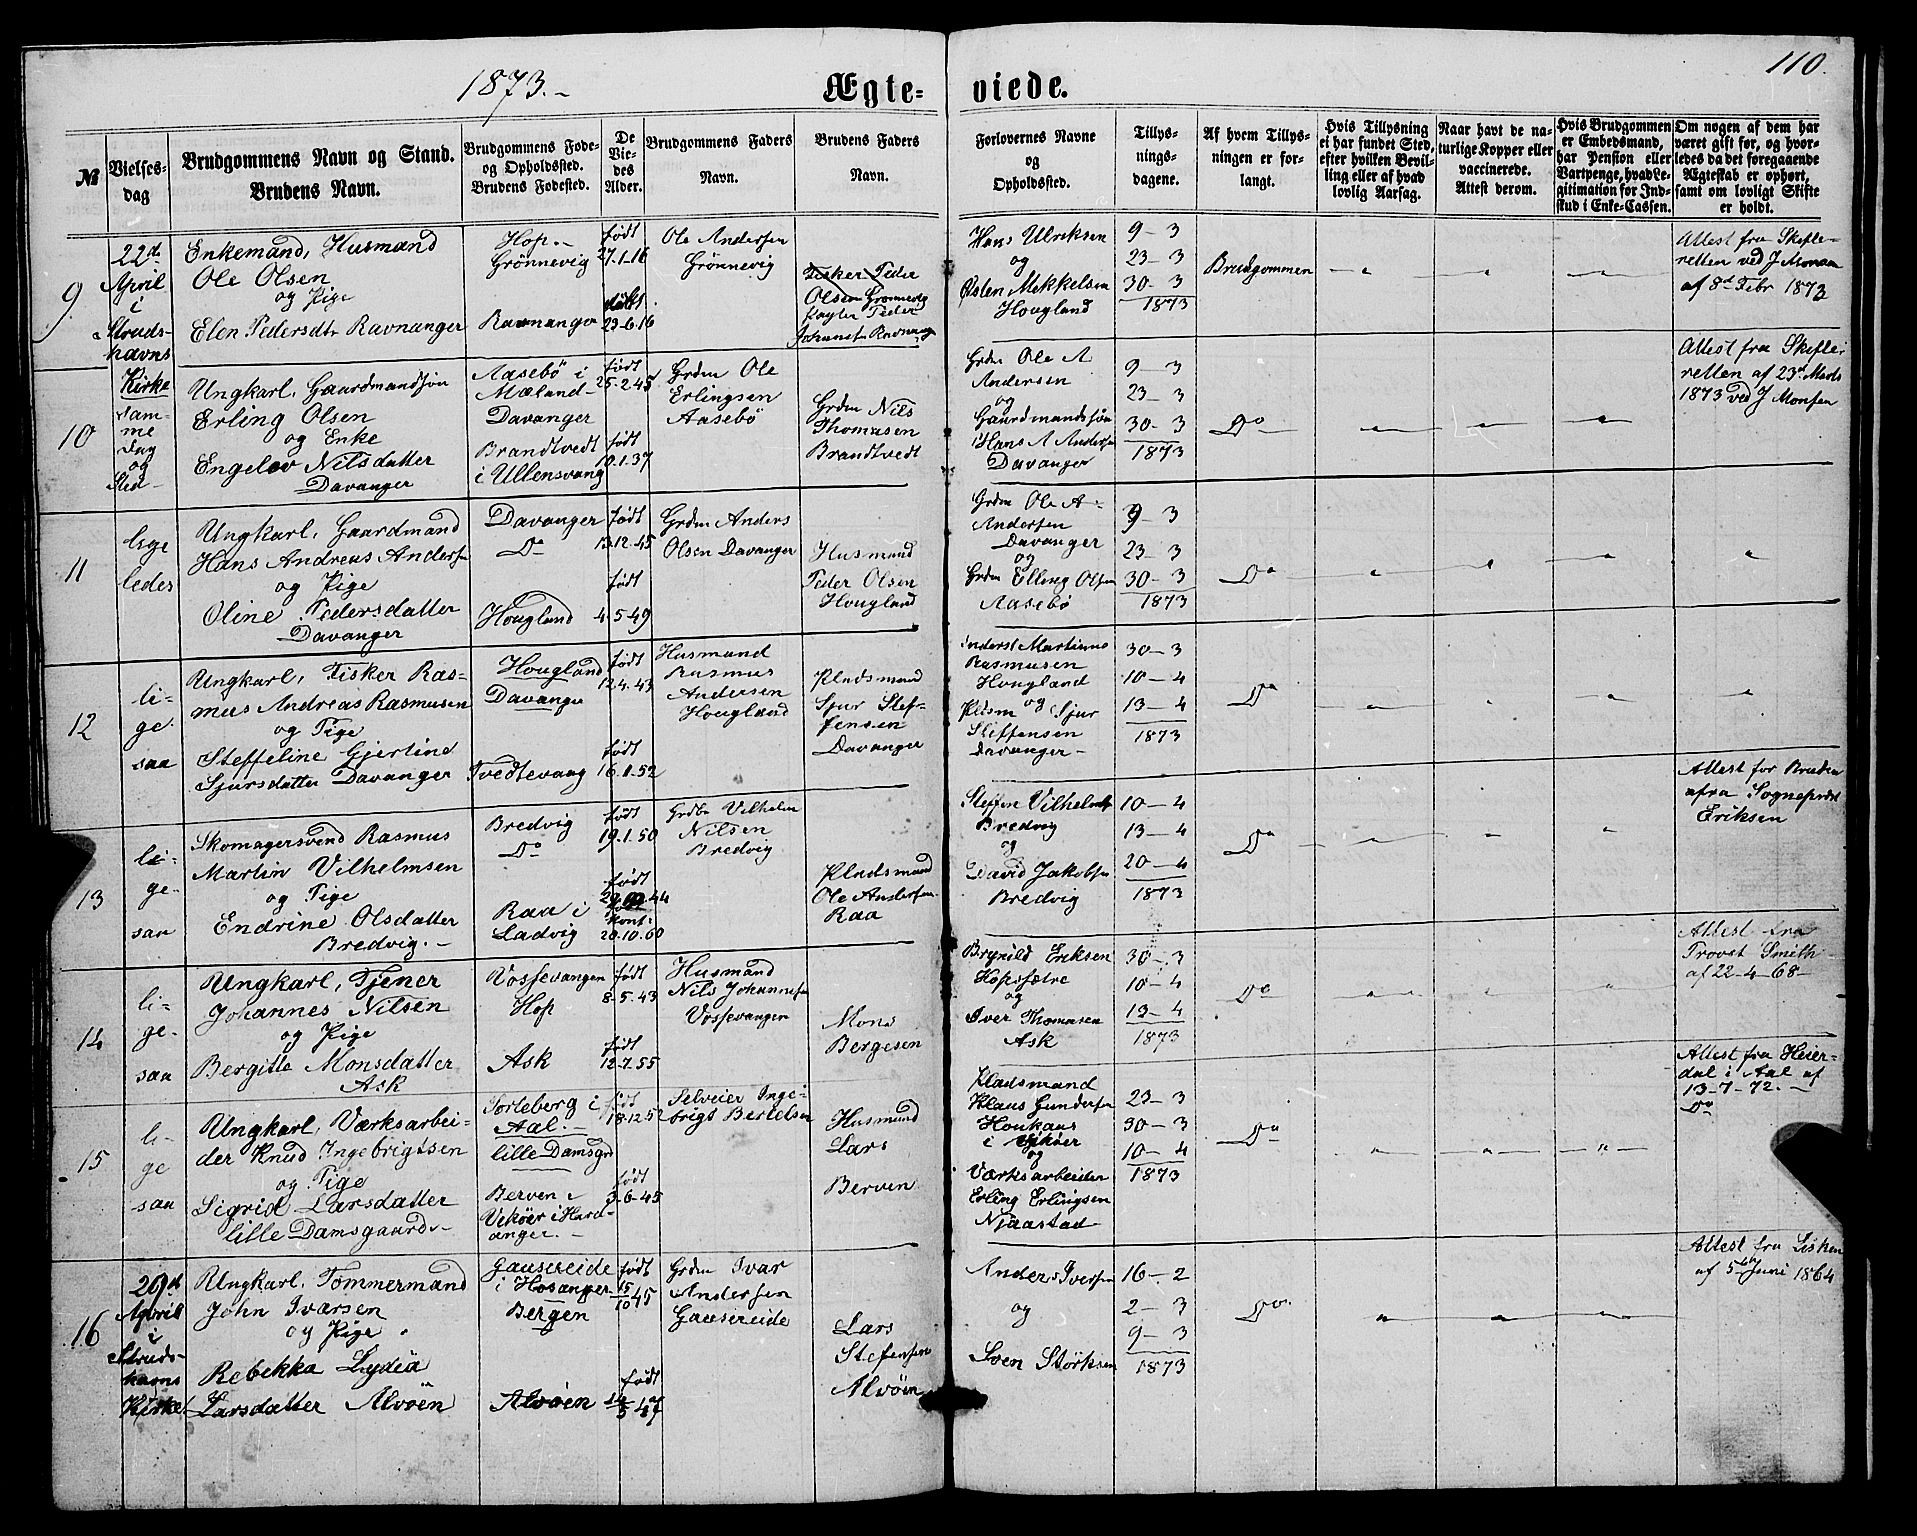 1873.-
Ægte-
viede.
110.
№
Vielses-
dag
Brudgommens Navn og Stand.
Brudens Navn.
Brudgommens Føde-
og Opholdssted.
Brudens Fødested.
De
Vie-
des
Alder.
Brudgommens Faders
Navn.
Brudens Faders
Navn.
Forlovernes Navne
og
Opholdssted.
Tillys-
nings-
dagene.
Af hvem Tillys-
ningen er for-
langt.
Hvis Tillysning
ei har fundet Sted,
efter hvilken Bevil-
ling eller af hvad
lovlig Aarsag.
Naar havt de na-
turlige Kopper eller
vaccinerede.
Attest derom.
Hvis Brudgommen
er Embedsmand,
har Pension eller
Vartpenge, hvad Le-
gitimation for Ind-
skud i Enke-Cassen.
Om nogen af dem har
været gift før, og hvor-
ledes da det foregaaende
Ægteskab er ophørt,
samt om lovligt Skifte
er holdt.
9
22de
April
i
Struds-
havns
Kirke
Enkemand, Husmand
Ole Olsen
og Pige
Elen Pedersdtr Ravnanger
Hop.-
Grönnevig
Ravnanger
født
27-1-16
døbt
23-6-16
Ole Andersen
Grönnevig
Fisker Peder
Olsen Grönnevig
Peder
Johannes Ravnang
Hans Ulriksen
og
Østen Mekkelsen
Hougland
9-3
23-3
30-3
1873
Brudgommen
Attest fra Skifte-
retten ved J Monsen
af 8de Febr 1873
10
sam-
me
Dag
og
Sted-
Ungkarl, Gaardmandsøn
Erling Olsen
og Enke
Engelev Nilsdatter
Davanger
Aasebö i
Mæland-
Davanger
Brandtvedt
i Ullensvang
født
25-2-45
født
10-1-37
Grdm Ole
Erlingsen
Aasebö
Grdm Nils
Thomasen
Brandtvedt
Grdm Ole A
Andersen
og
Gaardmandssøn
Hans A Andersen
Davanger
9-3
23-3
30-3
1873
Do
Attest fra Skifte-
retten af 23de Marts
1873 ved J Monsen
11
lige
ledes
Ungkarl, Gaardmand
Hans Andreas Andersen
og Pige
Oline Pedersdatter
Davanger
Davanger
Do
Hougland
født
13-12-45
født
4-5-49
Grdm Anders
Olsen Davanger
Husmand
Peder Olsen
Hougland
Grdm Ole A-
Andersen
Davanger
og
Grdm Elling Olsen
Aasebö
9-3
23-3
30-3
1873
Do
12
li-
ge
saa
Ungkarl, Fisker Ras-
mus Andreas Rasmusen
og Pige
Steffeline Gjertine
Sjursdatter Davanger
Hougland
Davanger
Tvedtevang
født
12-4-43
født
Husmand
Rasmus
Andersen
Hougland
Pladsmand
Sjur Stef-
fensen
Davanger
Martinus
Rasmusen
Hougland
og
Pldsm Sjur
Steffensen
Davanger-
30-3
10-4
13-4
1873
Do
13
li-
ge-
saa
Skomagersvend Rasmus
Martin Vilhelmsen
og Pige
Endrine Olsdatter
Bredvig.-
Bredvig
Do
Raa i
Ladvig
født
19-1-50
født
konf:
20-10-60
Vilhelm
Nilsen
Bredvig
Pladsmand
Ole Andersen
Raa
Steffen Vilhelms
Bredvig
og
David Jakobsen
Bredvig
10-4
13-4
20-4
1873
Do
Attest for Bruden
afra Sogneprest
Eriksen
14
li-
ge-
saa
Ungkarl, Tjener
Johannes Nilsen
og Pige
Bergitte Monsdatter
Ask
Vossevangen
Hop
Ask
født
8-5-43
født
12-7-55
Husmand
Nils Johannesen
Vossevangen
Mons
Bergesen
Brynild Eriksen
Hopssætre
og
Iver Thomasen
Ask
30-3
10-4
13-4
1873
Do
Attest fra
Provst Smith
af 22-4-68-
15
li-
ge
saa
Ungkarl, Værksarbei-
der Knud Ingebrigtsen
og Pige
Sigrid Larsdatter
lille Damsgaard.-
Torleborg i
Aal.-
lille Damsgrd
Berven i
Vikøer i Hard-
anger.-
født
18-12-52
født
3-6-45
Selveier Inge-
brigt Bertelsen
Husmand
Lars
Berven
Pladsmand
Klaus Gundersen
Houkaas
i Vikøer
og
Værksarbeider
Erling Erlingsen
Njaastad
23-3
30-3
10-4
1873
Do
Attest fra Heier-
dal i Aal af
13-7-72.-
Do
16
April
i
Struds-
havns
Kirke
Ungkarl, Tømmermand
John Ivarsen
og Pige
Rebekka Lydia
Larsdatter Alvöen
Gausereide
i Hosanger
Bergen
Alvöen
født
15/10 45
født
14/5 47
Grdm Ivar
Andersen
Gausereide
Lars
Stefensen
Alvöen
Anders Iversen
og
Sven Störksen
16-2
2-3
9-3
1873
Do
Attest fra
af 5te Juni 1864